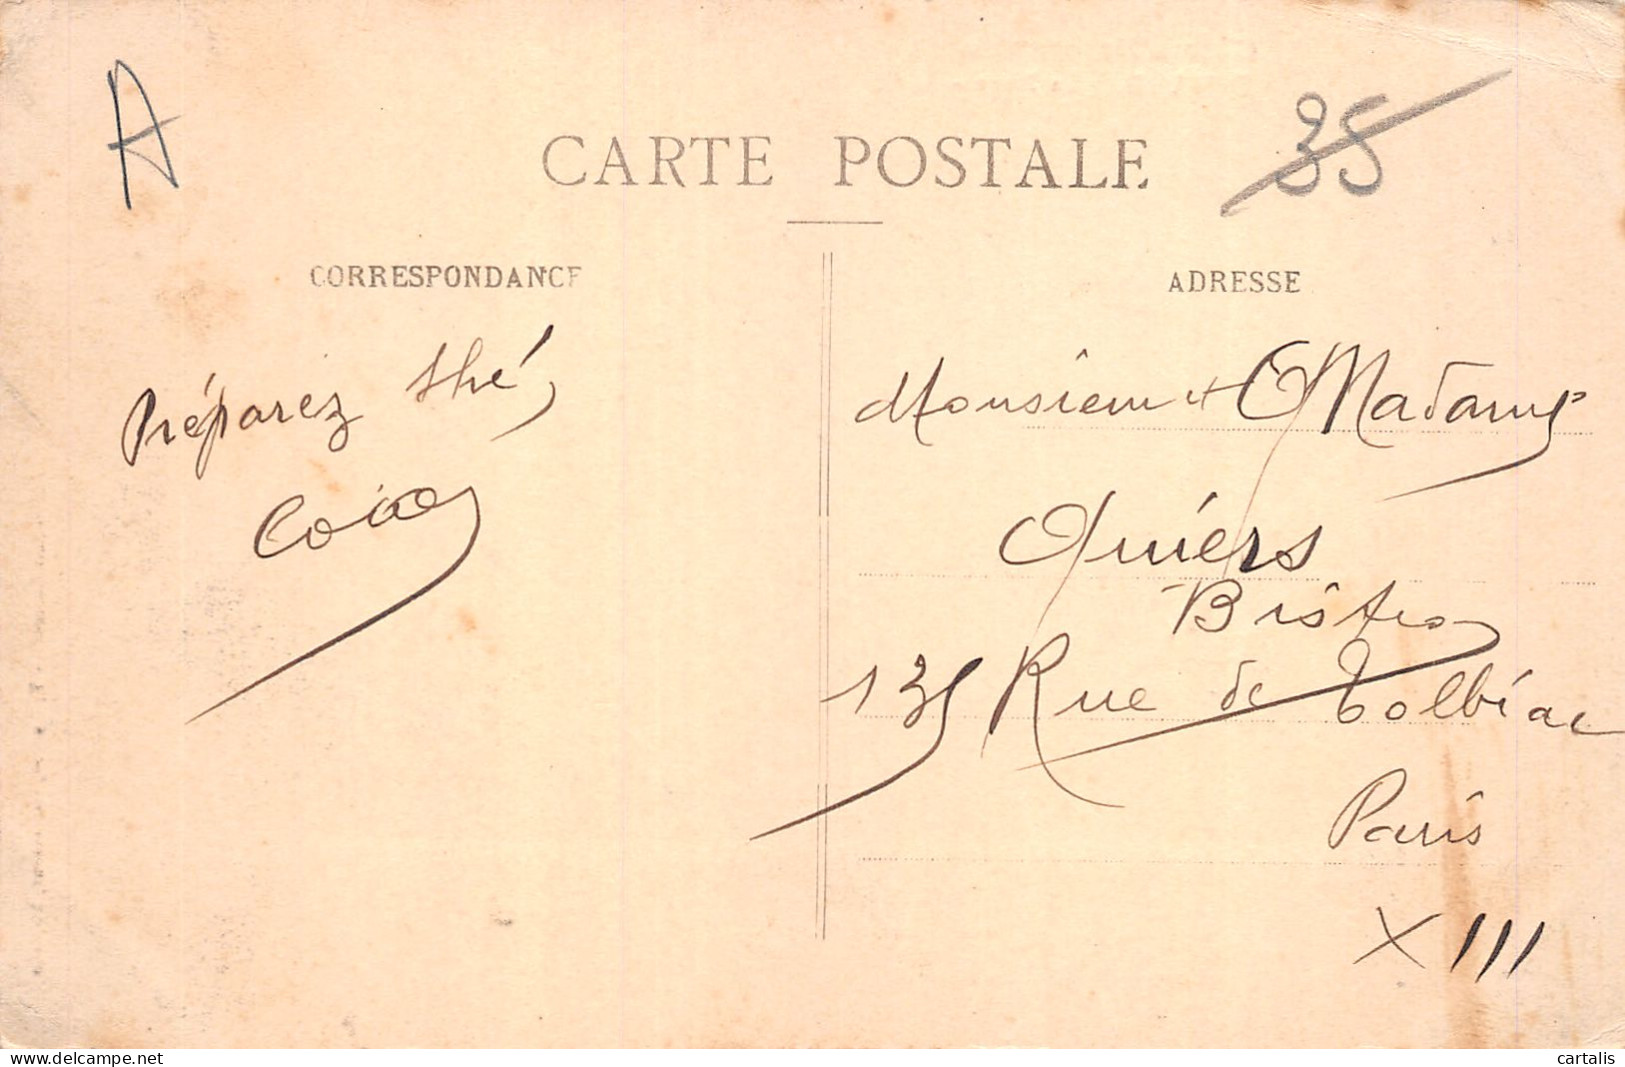 A
CARTE POSTALE
35
CORRESPONDANCE
Préparez thé
ADRESSE
Monsieur et Madame
Bistro
135 Rue de Tolbiac
Paris
XIII
delcampe.net
cartalis